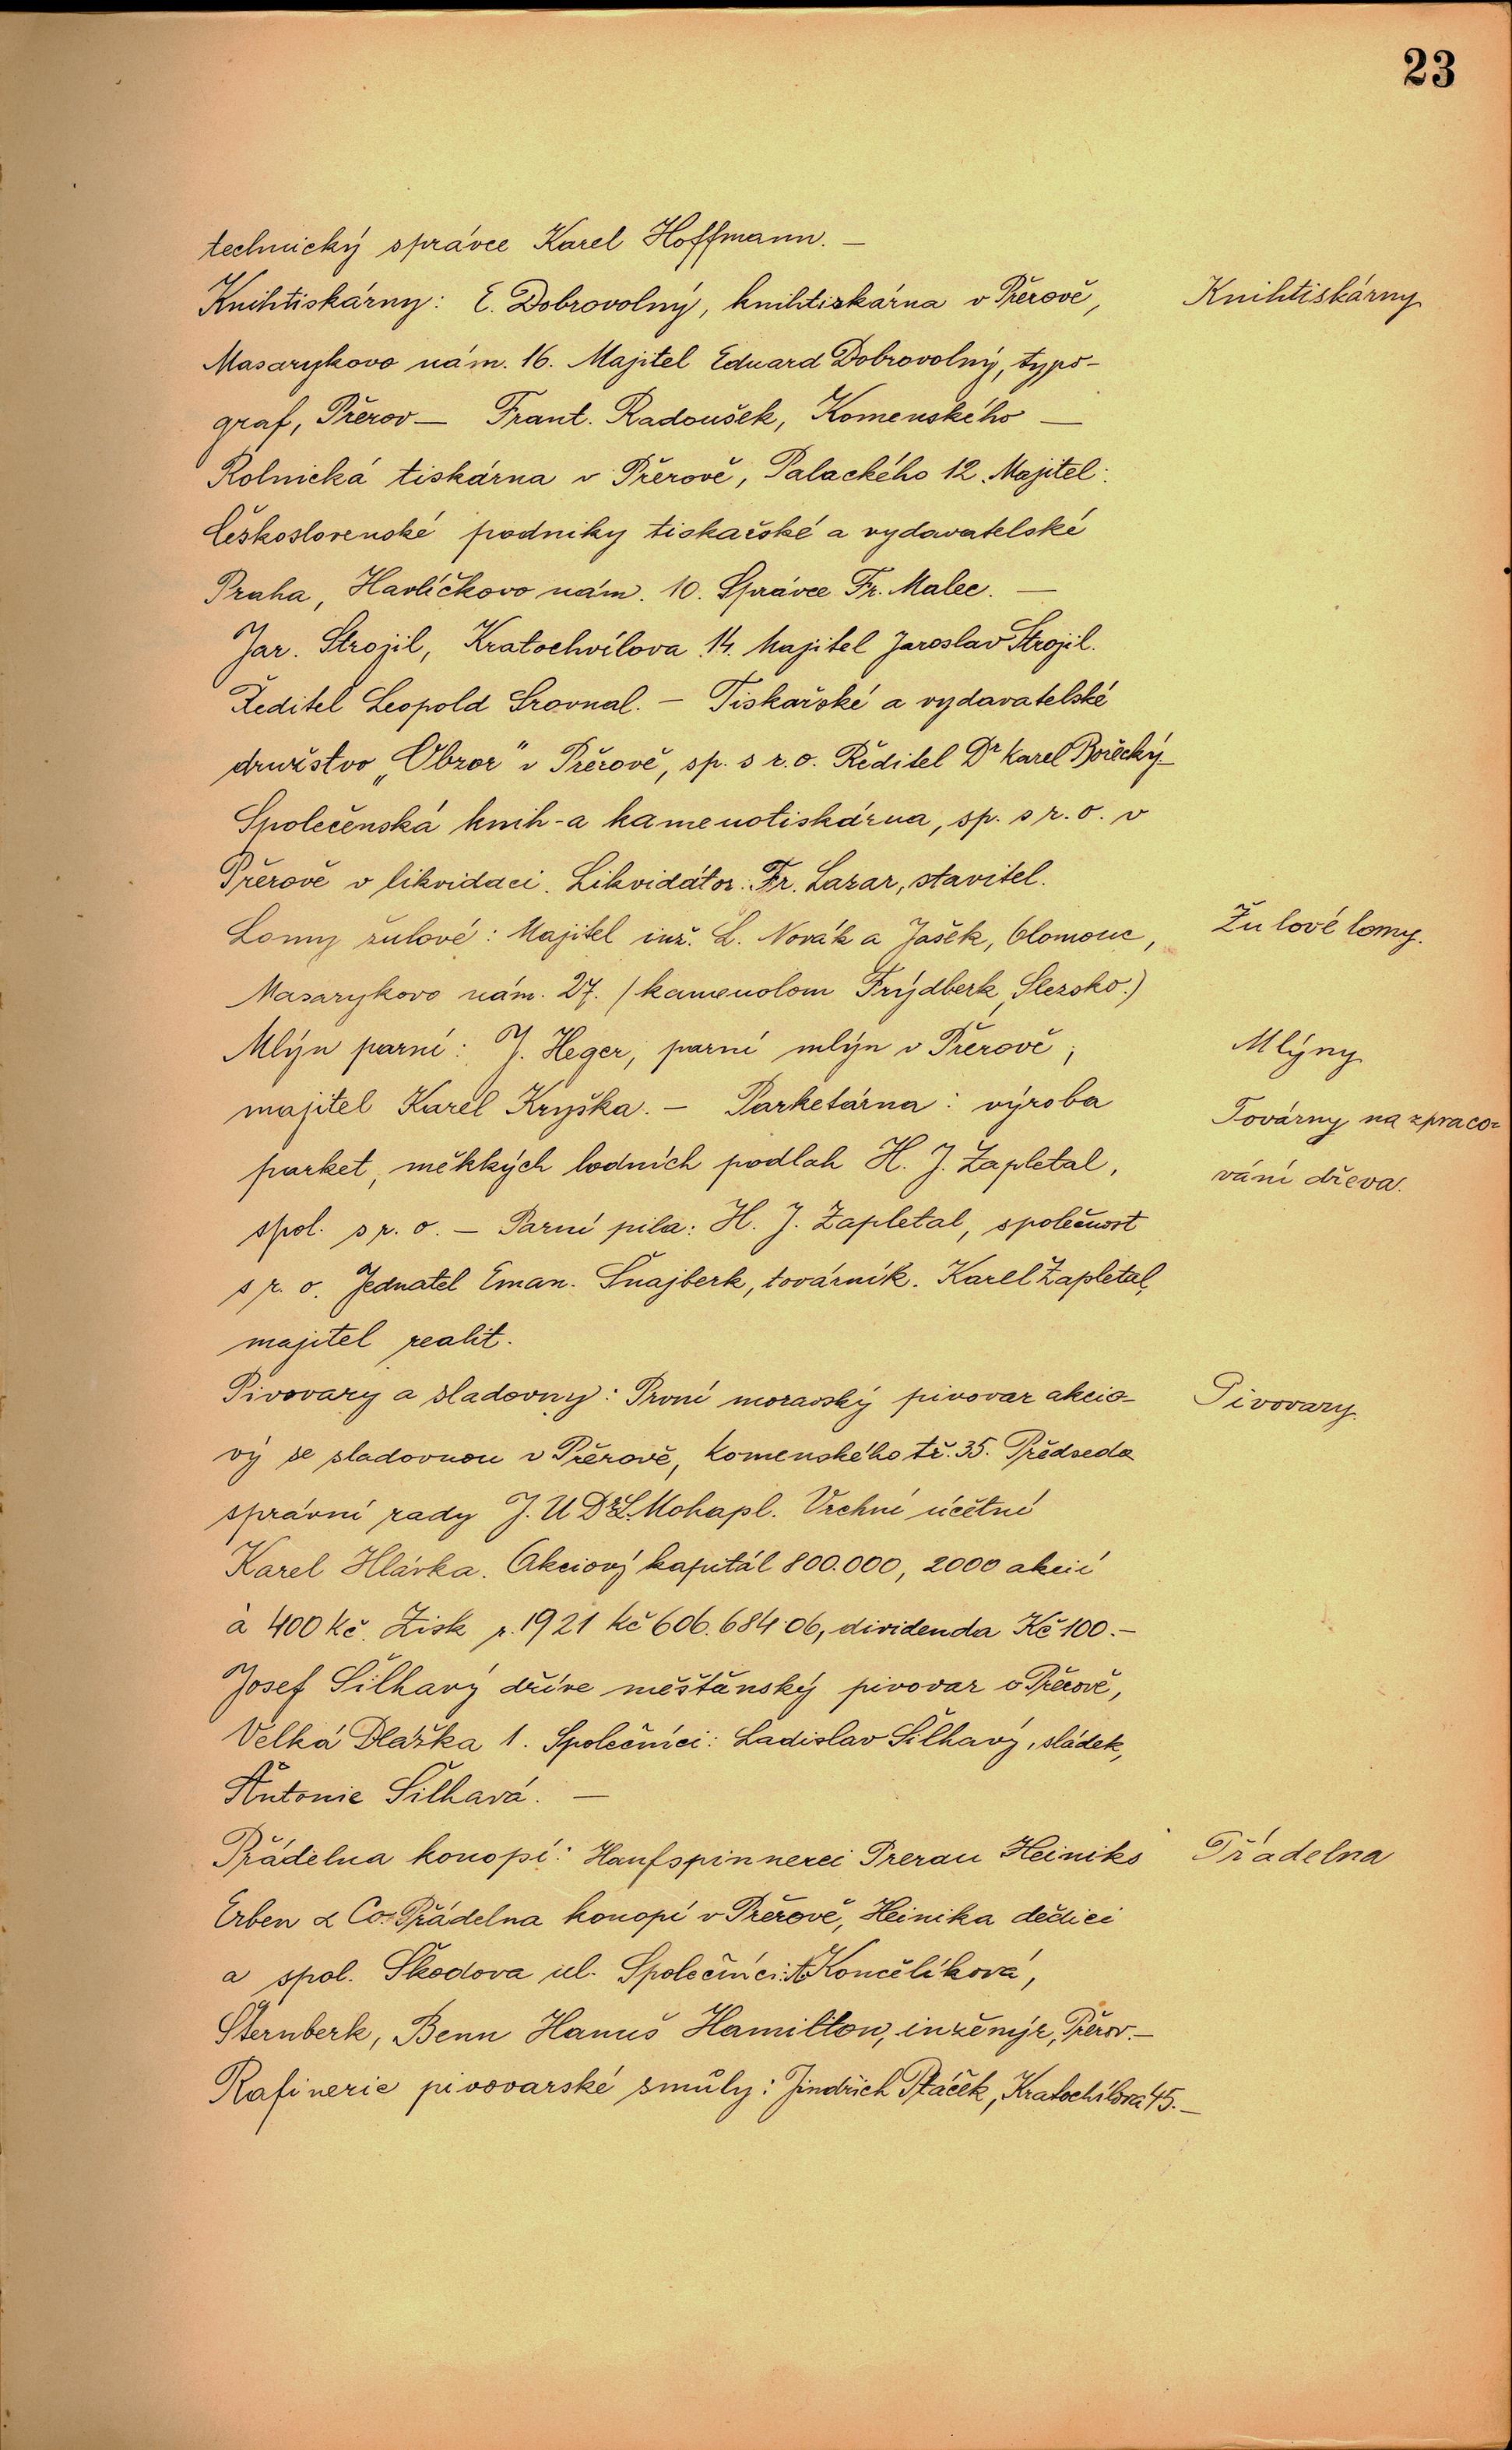 23
technický správce Karel Hoffmann. —
Knihtiskárny: E. Dobrovolný, knihtiskárna v Přerově,
Knihtiskárny
Masarykovo nám. 16. Majitel Eduard Dobrovolný, typo-
graf, Přerov — Frant. Radoušek, Komenského —
Rolnická tiskárna v Přerově, Palackého 12. Majitel:
Československé podniky tiskařské a vydavatelské
Praha, Havlíčkovo nám. 10. Správce Fr. Malec. —
Jar. Strojil, Kratochvílova 14. Majitel Jaroslav Strojil.
Ředitel Leopold Srovnal. — Tiskařské a vydavatelské
družstvo „Obzor" v Přerově, sp. s r. o. Ředitel Dr Karel Bořecký —
Společenská knih- a kamenotiskárna, sp. s r. o. v
Přerově v likvidaci. Likvidátor: Fr. Lazar, stavitel.
Lomy žulové: Majitel inž. L. Novák a Jašek, Olomouc,
Žulové lomy.
Masarykovo nám. 27. (kamenolom Frýdberk, Slezsko.)
Mlýn parní: J. Heger, parní mlýn v Přerově,
Mlýny
majitel Karel Kryška. — Parketárna: výroba
Továrny na zpraco-
parket, měkkých lodních podlah H. J. Zapletal,
vání dřeva.
spol. s r. o. — Parní pila: H. J. Zapletal, společnost
s r. o. Jednatel Eman. Šnajberk, továrník. Karel Zapletal,
majitel realit.
Pivovary a sladovny: První moravský pivovar akcio-
Pivovary
vý se sladovnou v Přerově, Komenského tř. 35. Předseda
správní rady J. U Dr. L. Mohapl. Vrchní účetní
Karel Hlávka. Akciový kapitál 800.000, 2000 akcií
à 400 Kč. Zisk r. 1921 Kč 606.684.06, dividenda Kč 100.—
Josef Šilhavý dříve měšťanský pivovar v Přerově,
Velká Dlážka 1. Společníci: Ladislav Šilhavý, sládek,
Antonie Šilhavá. —
Přádelna konopí: Hanfspinnerei Prerau Heiniks
Přadelna
Erben & Co. Přádelna konopí v Přerově, Heinika dědici
a spol. Škodova ul. Společníci: A. Koncelíková,
Šternberk, Benn Hanuš Hamilton, inženýr, Přerov. —
Rafinerie pivovarské smůly: Jindřich Ptáček, Kratochílova 45. —